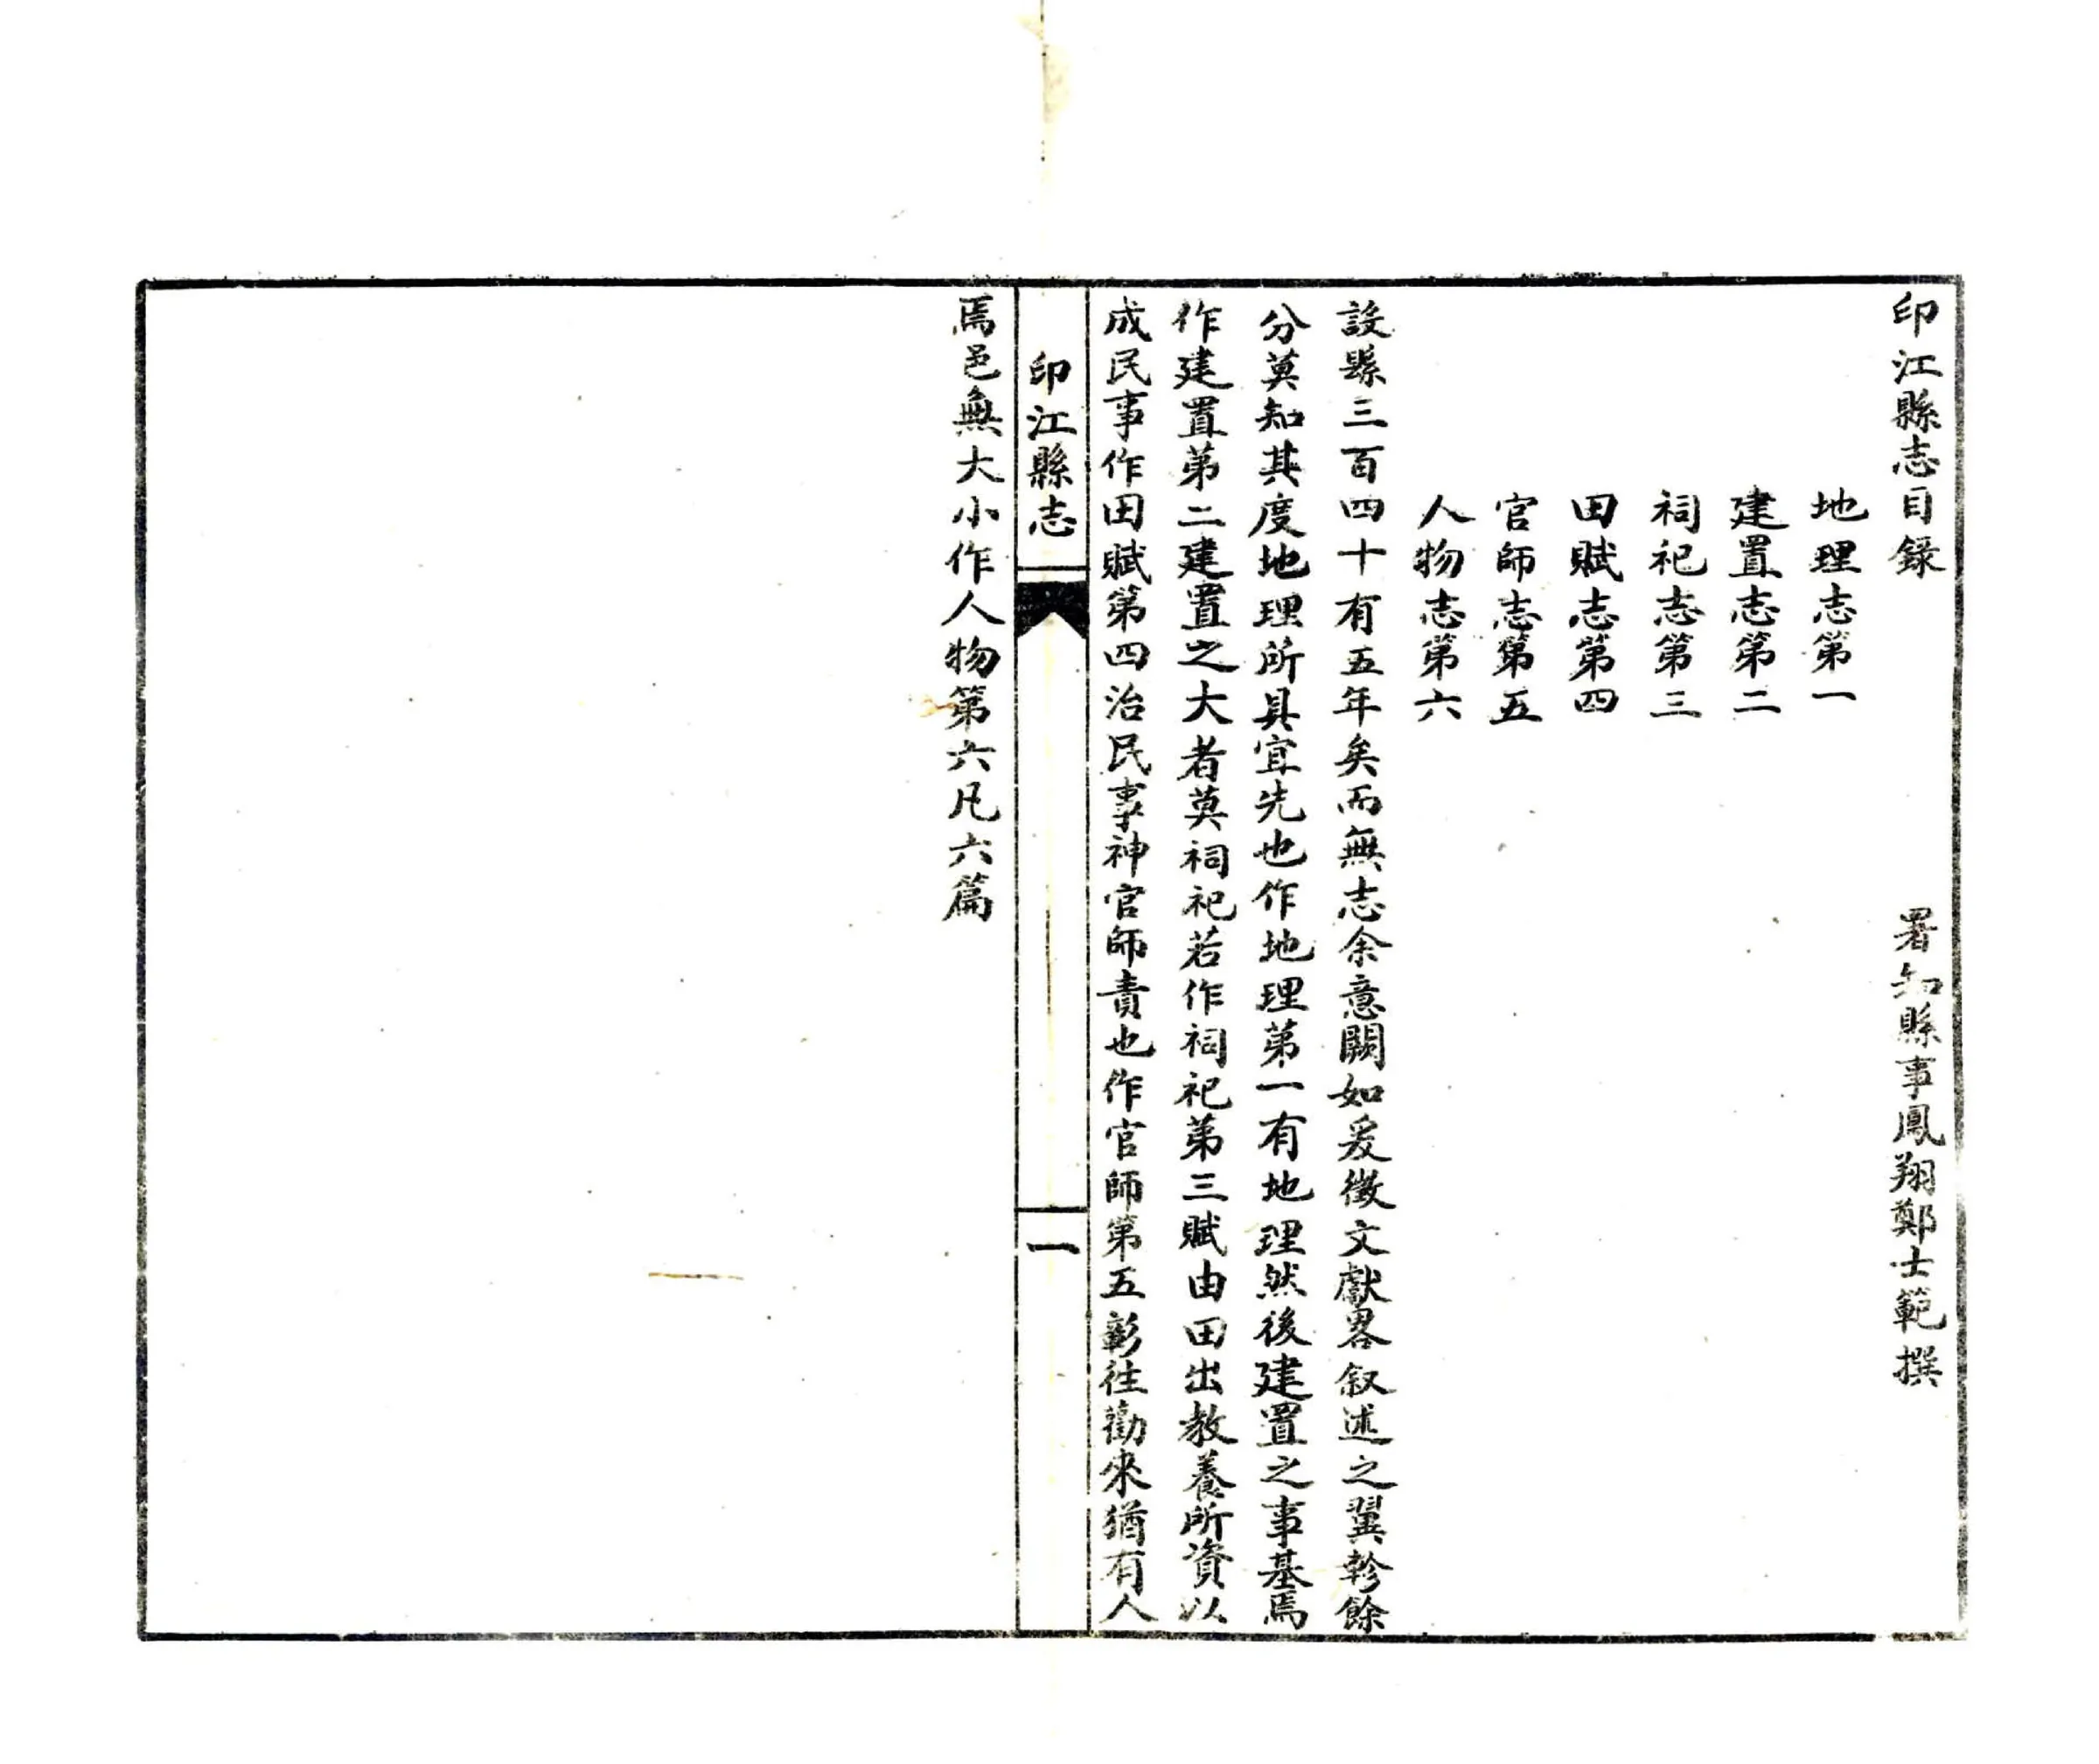 印江縣志目録 署知縣事鳳翔鄭士範撰
地理志第一
建置志第二
祠祀志第三
田賦志第四
官師志第五
人物志第六
設縣三百四十有五年矣而無志余意闕如爰徵文獻畧叙述之翼軫餘
分莫知其度地理所具宜先也作地理苐一有地理然後建置之事基焉
作建置苐二建置之大者莫祠祀若作祠祀苐三賦由田出教養所資以
成民事作田賦第四治民事神官師責也作官師第五彰往勸來猶有人
印江縣志
一
焉邑無大小作人物第六凡六篇